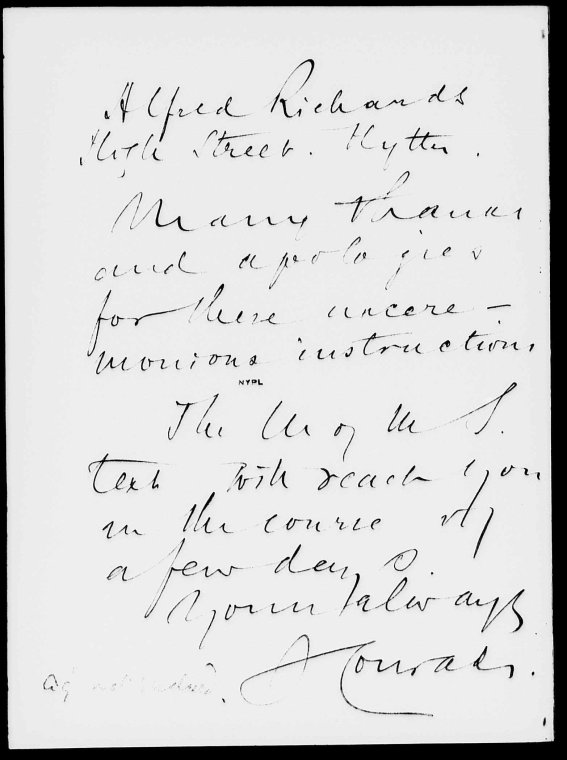 Alfred Richards
High Street. Hythe.
Many thanks
and apologies
for these uncere-
monious instructions
NYPL
The M of the S.
text will reach you
in the course of
a few days.
Yours always
J Conrad.
not